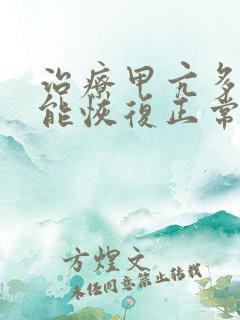 治療甲亢多
能恢復正常
方煌文
未经同意禁止转载